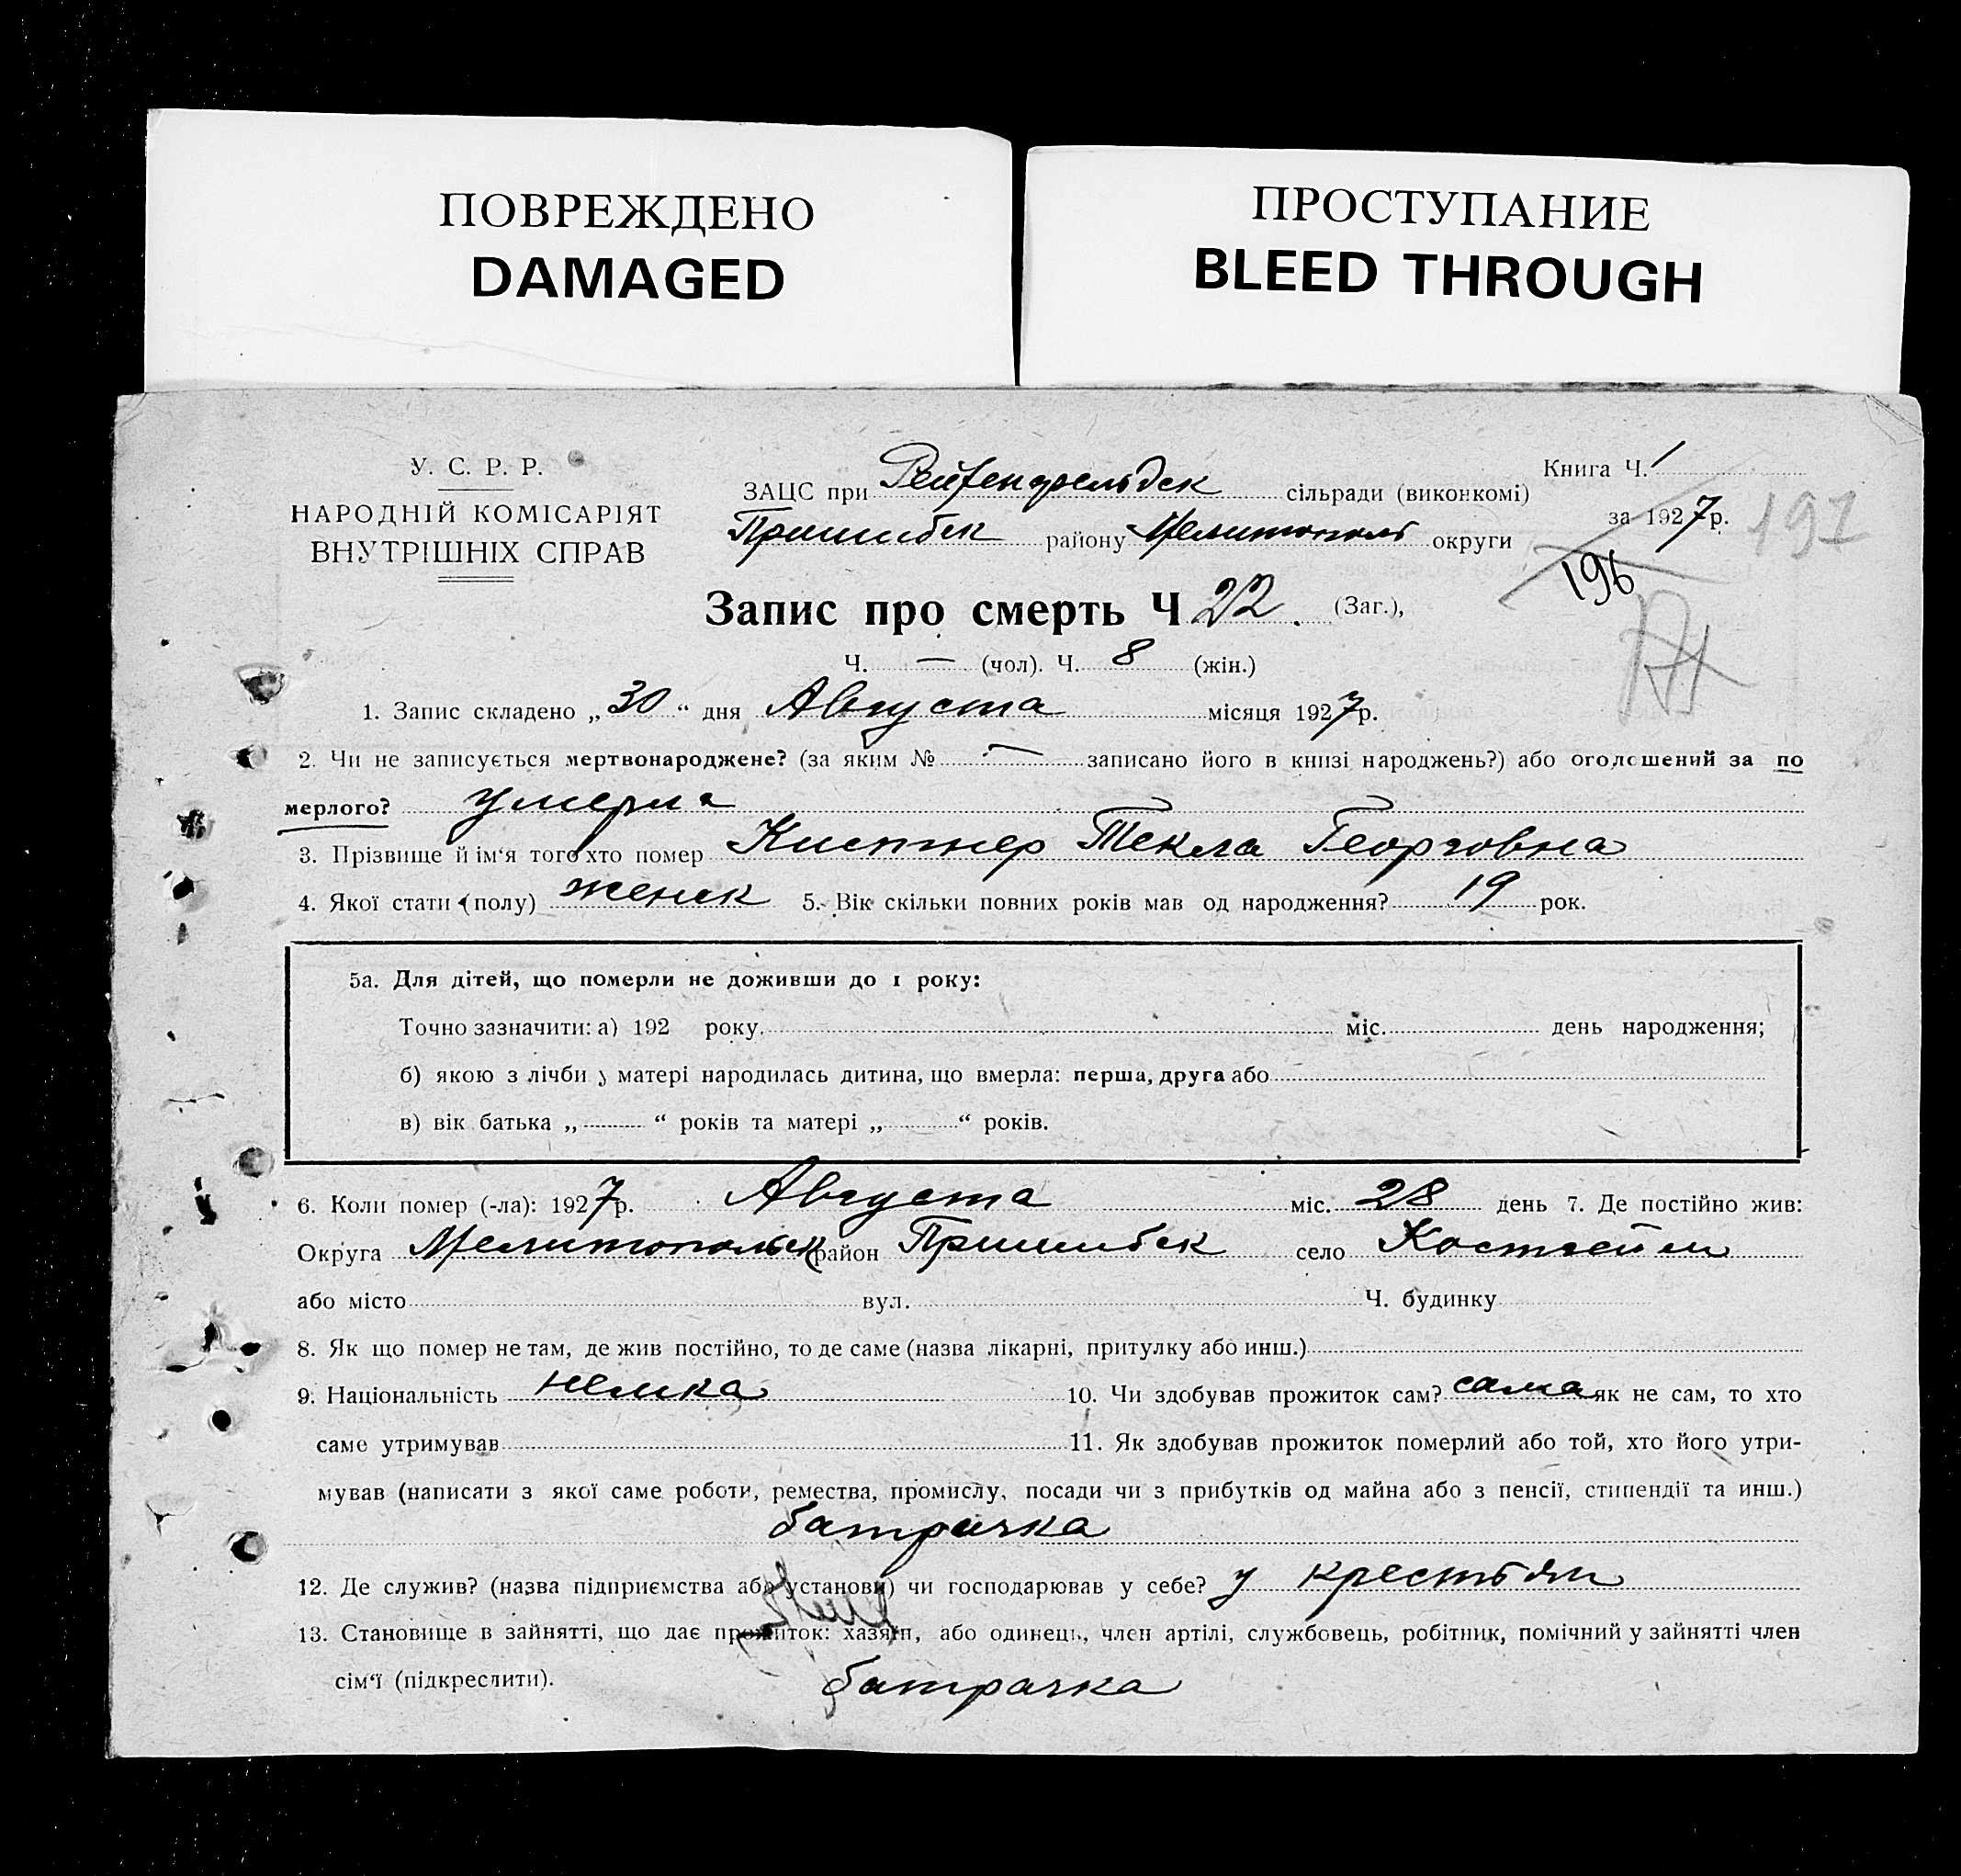 ПОВРЕЖДЕНО
DAMAGED
ПРОСТУПАНИЕ
BLEED THROUGH
У. С. Р. Р.
НАРОДНІЙ КОМІСАРІЯТ
ВНУТРІШНІХ СПРАВ
ЗАЦС при Рейхенфельдск сільради (виконкомі)
Пришибск району Мелитополь округи
Книга Ч. 1
за 1927 р.
197
196
Запис про смерть Ч 22. (Заг.),
Ч. — (чол). Ч. 8 (жін.)
1. Запис складено „30“ дня Августа місяця 1927 р.
2. Чи не записується мертвонароджене? (за яким № — записано його в книзі народжень?) або оголошений за по
мерлого? умерла
3. Прізвище й ім‘я того хто помер Кистнер Текла Георговна
4. Якої стати (полу) женск 5. Вік скільки повних років мав од народження? 19 рок.
5а. Для дітей, що померли не доживши до 1 року:
Точно зазначити: а) 192 року. міс. день народження;
б) якою з лічби у матері народилась дитина, що вмерла: перша, друга або
в) вік батька „ “ років та матері „ “ років.
6. Коли помер (-ла): 1927 р. Августа міс. 28 день 7. Де постійно жив:
Округа Мелитопольск район Пришибск село Костгейм
або місто вул. Ч. будинку
8. Як що помер не там, де жив постійно, то де саме (назва лікарні, притулку або инш.)
9. Національність немка 10. Чи здобував прожиток сам? сама як не сам, то хто
саме утримував 11. Як здобував прожиток померлий або той, хто його утри-
мував (написати з якої саме роботи, ремества, промислу, посади чи з прибутків од майна або з пенсії, стипендії та инш.)
батрачка
12. Де служив? (назва підприємства або установи) чи господарював у себе? у крестьян
13. Становище в зайнятті, що дає прожиток: хазяїн, або одинець, член артілі, службовець, робітник, помічний у зайнятті член
сім‘ї (підкреслити). батрачка